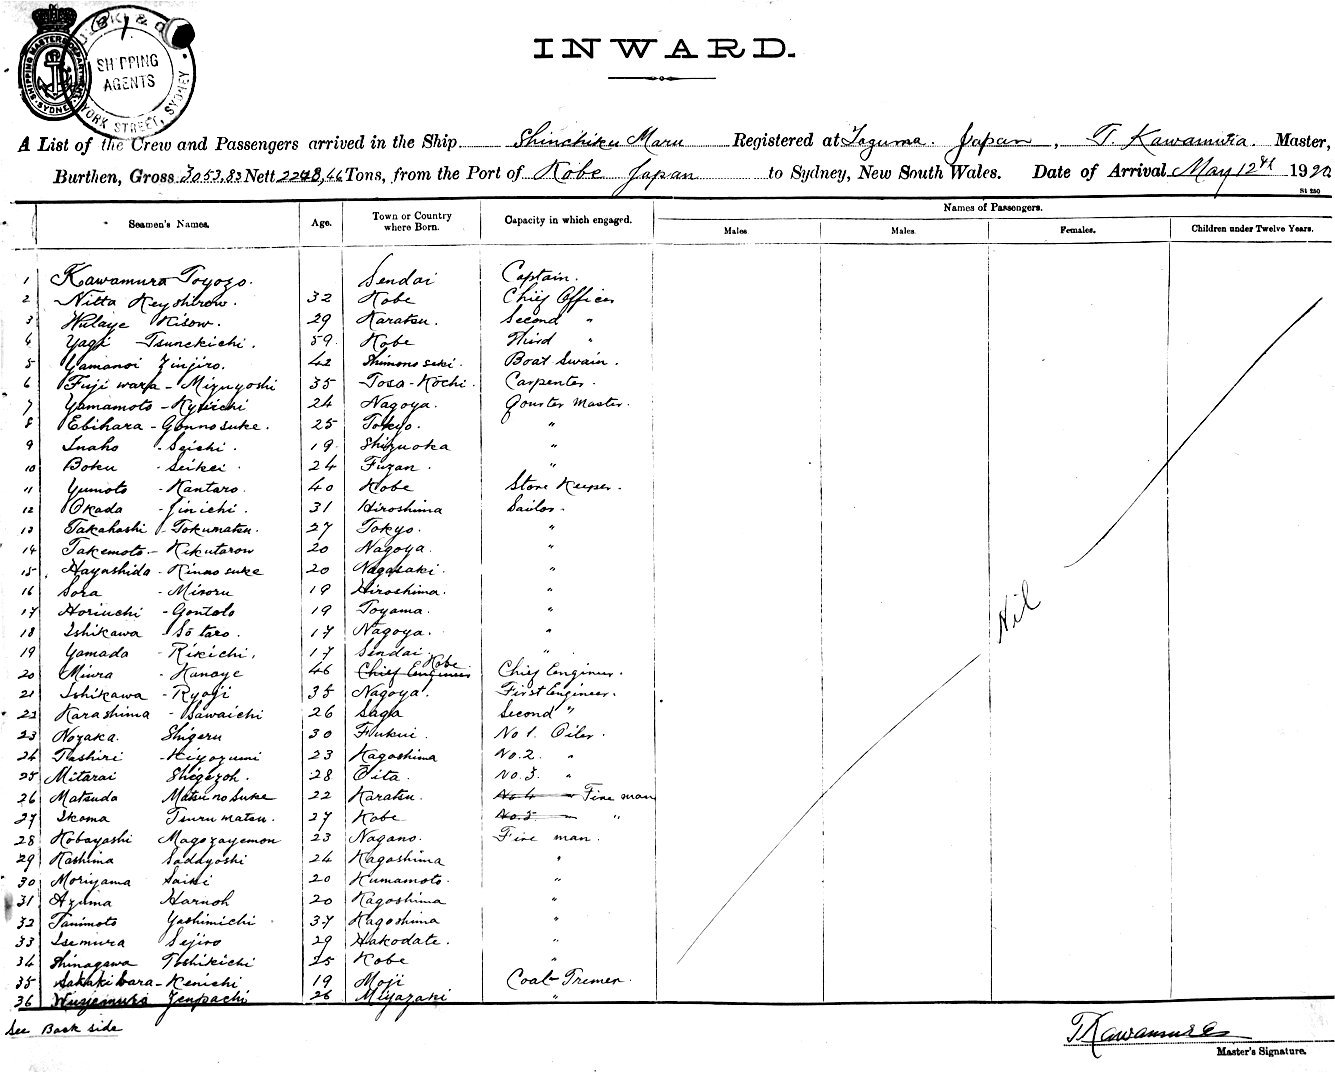 SHIPPING MASTERS DEPARTMENT SYDNEY
& Co
SHIPPING
AGENTS
YORK STREET, SYDNEY
INWARD.
A List of the Crew and Passengers arrived in the Ship Shinchiku Maru Registered at Japan, T. Kawamura Master,
Burthen, Gross 3053,83 Nett 2248,46 Tons, from the Port of Kobe Japan to Sydney, New South Wales. Date of Arrival May 12th 1920
St 250
Seamen's Names. Age. Town or Country where Born. Capacity in which engaged. Names of Passengers.
Males. Males Females. Children under Twelve Years.
1 Kawamura Toyozo. Sendai Captain.
2 Nitta Keyshirow. 32 Kobe Chief Officer
3 Kisow. 29 Karatsu. Second "
4 Yagi Tsunekichi. 59 Kobe Third "
5 Yamanoi Zinjiro. 42 Shimonoseki. Boat Swain.
6 Fujiwara - Mizuyoshi 35 Tosa-Kōchi. Carpenter.
7 Yamamoto - 24 Nagoya. Qourter Master.
8 Ebihara - Gonnosuke. 25 Tokyo. "
9 Inaho - Seichi. 19 Shizuoka "
10 Boku - Seikei. 24 Fuzan. "
11 Yumoto - Kantaro. 40 Kobe Store Keeper.
12 Okada - Jinichi. 31 Hiroshima Sailor.
13 Takahashi - Tokumatsu. 27 Tokyo. "
14 Takemoto - Kikutarow 20 Nagoya. "
15 Hayashida - Kinnosuke 20 Nagasaki. "
16 Sora - Minoru 19 Hiroshima. "
17 Horiuchi - Gontolo 19 Toyama. "
18 Ishikawa Sōtaro. 17 Nagoya. "
19 Yamada - Rikichi. 17 Sendai. "
20 Miura - Kanaye 46 Chief Engineer Kobe Chief Engineer.
21 Ishikawa - Ryoji 35 Nagoya. First Engineer.
22 Karashima - Sawaichi 26 Saga Second "
23 Nozaka. Shigeru 30 Fukui. No 1. Oiler.
24 Tashiri - Kiyozumi 23 Kagoshima No. 2. "
25 Mitarai Shigezoh. 28 Ōita. No. 3. "
26 Matsuda Matsunosuke 22 Karatsu. No 4 " Fire man
27 Ikoma Tsurumatsu. 27 Kobe No. 5 "
28 Kobayashi Magozayemon 23 Nagano. Fire man.
29 Kashima Saddyoshi 24 Kagoshima "
30 Moriyama Saiki 20 Kumamoto. "
31 Azuma Haruoh 20 Kagoshima "
32 Tanimoto Yoshimichi 37 Kagoshima "
33 Isemura Sejiro 29 Hakodate. "
34 Shinagawa Toshikichi 25 Kobe "
35 Sakakibara - Kenichi 19 Moji Coal-Tremer.
36 Zenpachi 26 Miyazaki "
Nil
See Back side
TKawamura
Master's Signature.